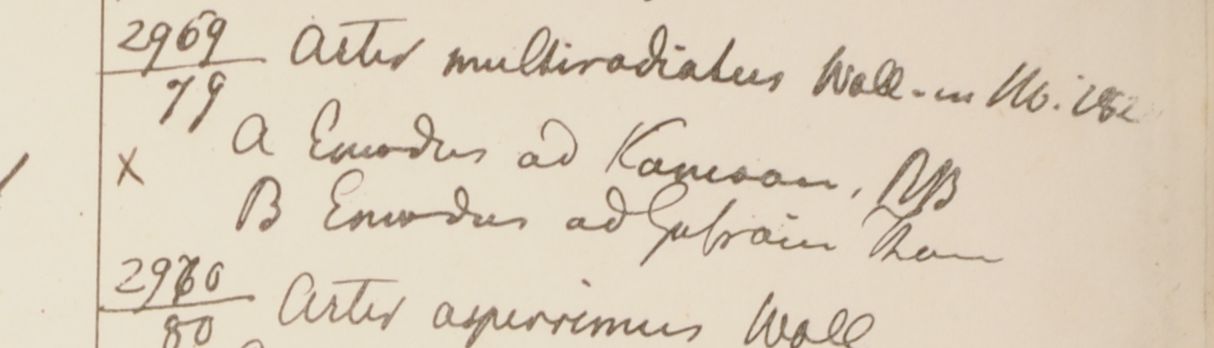 2969 Aster multiradiatus Wall - in Hb. 182
79
A Emodus ad Kamoon, RB
x
B Emodus ad Gosain Than
2970 Aster asperrimus Wall
80